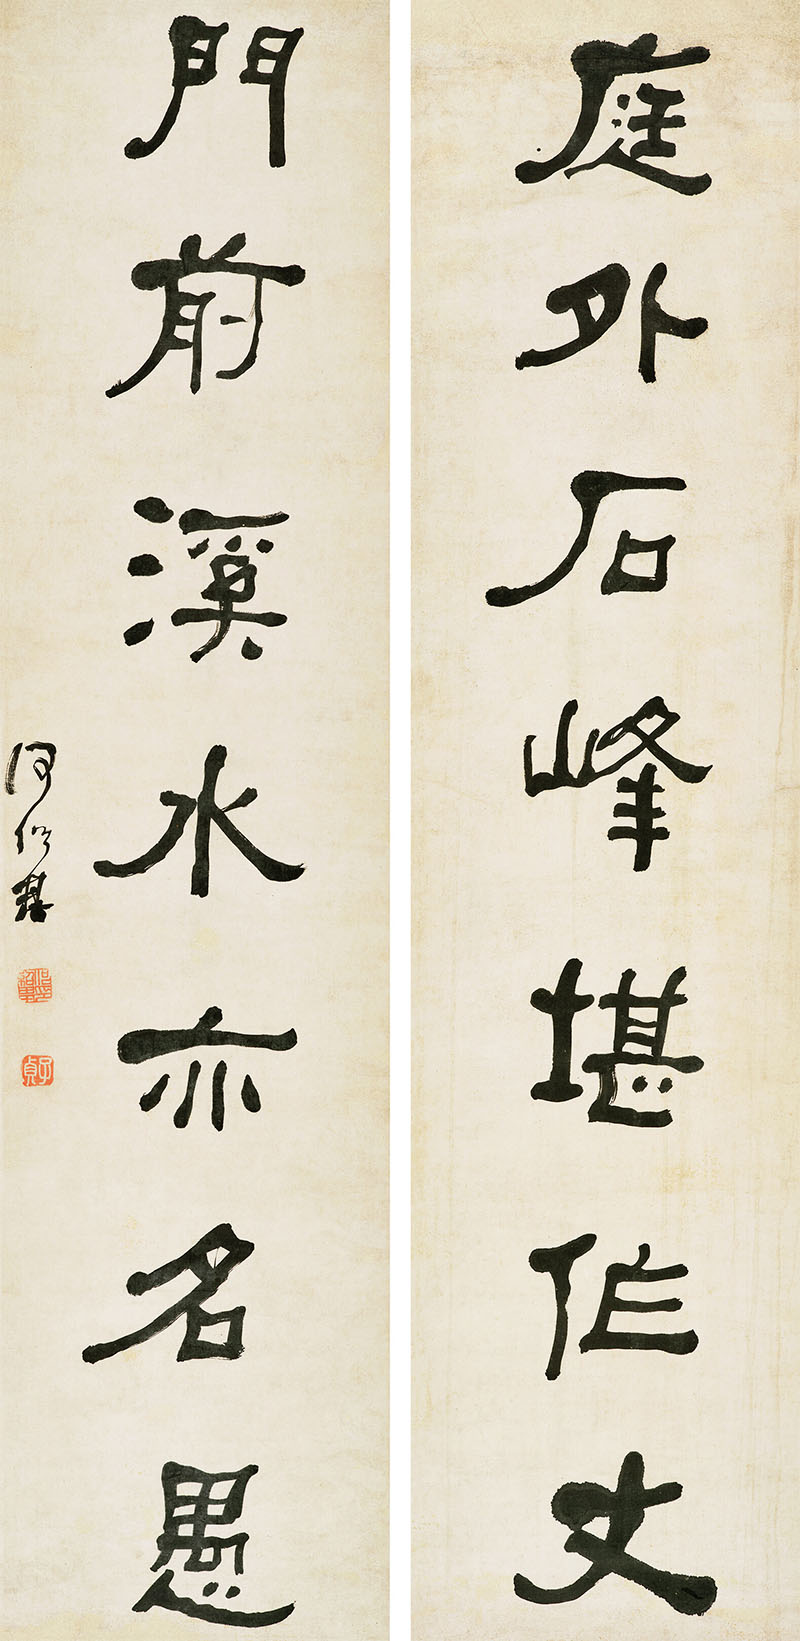 庭外石峰堪作丈
門前溪水亦名愚
何紹基
子貞